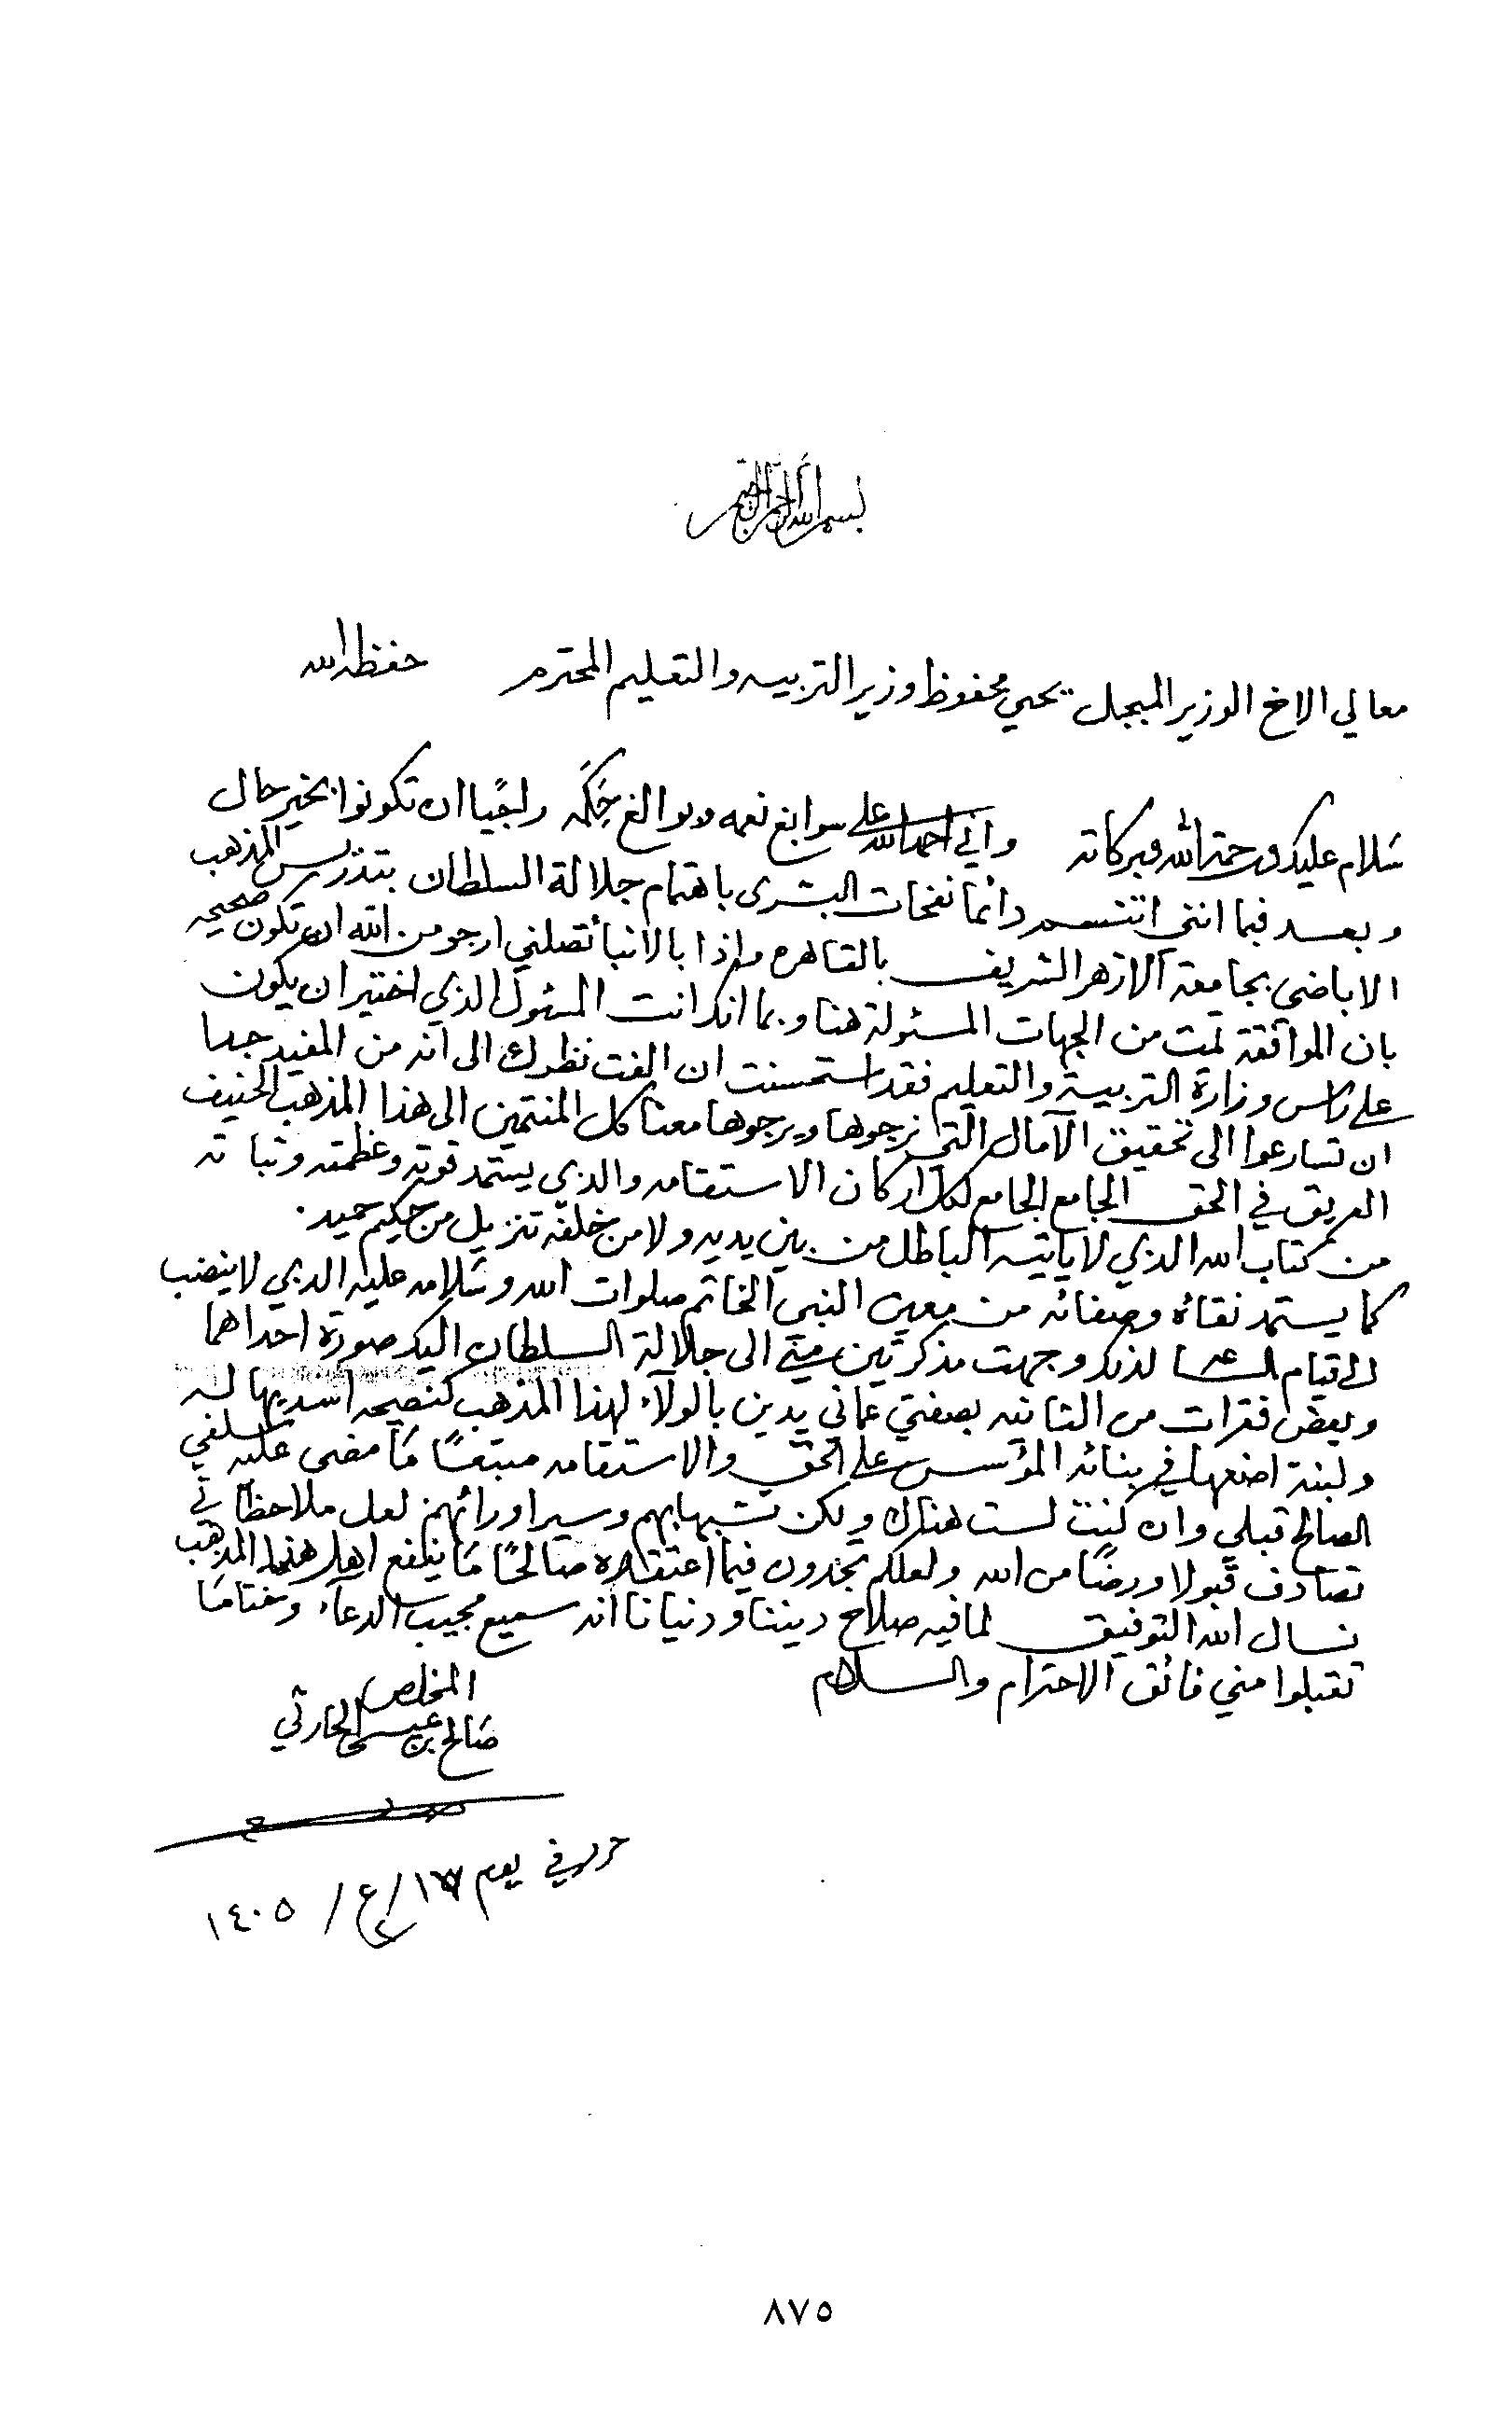 بسم الله الرحمن الرحيم
معالي الاخ الوزير المبجل يحيى محفوظ وزير التربيه والتعليم المحترم حفظه الله
سلام عليك ورحمة الله وبركاته واني احمد الله على سوابغ نعمه وبوالغ حِكَمه راجيًا ان تكونوا بخير حال
وبعد فبما انني اتنسم دائما نفحات البشرى باهتمام جلالة السلطان بتدريس المذهب
الاباضي بجامعة الازهر الشريف بالقاهره واذا بالانبا تصلني ارجو من الله ان تكون صحيحه
بان الموافقة تمت من الجهات المسئولة هنا وبما انك انت المسئول الذي اختير ان يكون
على راس وزارة التربية والتعليم فقد استحسنت ان الفت نظرك الى انه من المفيد جدا
ان تسارعوا الى تحقيق الآمال التي نرجوها ويرجوها معنا كل المنتمين الى هذا المذهب الحنيف
العريق في الحق الجامع الجامع لكل اركان الاستقامه والذي يستمد قوته وعظمته وثباته
من كتاب الله الذي لا ياتيه الباطل من بين يديه ولا من خلفه تنزيل من حكيم حميد.
كما يستمد نقاه وصفائه من معين النبي الخاتم صلوات الله وسلامه عليه الذي لا ينضب
الى قيام الساعه لذلك وجهت مذكرتين مني الى جلالة السلطان اليك صورة احداهما
وبعض فقرات من الثانيه بصفتي عماني يدين بالولاء لهذا المذهب كنصيحه اسديها له
ولبنة اضعها في بنائه المؤسس على الحق والاستقامه متبعًا ما مضى عليه سلفي
الصالح قبلي وان كنت لست هناك ولكن تشبها بهم وسيرا ورائهم لعل ملاحظاتي
تصادف قبولا ورضًا من الله ولعلكم تجدون فيما اعتقده صالحًا ما ينفع اهل هذا المذهب
نسال الله التوفيق لما فيه صلاح ديننا ودنيانا انه سميع مجيب الدعآء وختامًا
تقبلوا مني فائق الاحترام والسلام
المخلص
صالح بن عيسى الحارثي
حرر في يوم /ع٢/ ١٤٠٥
٨٧٥